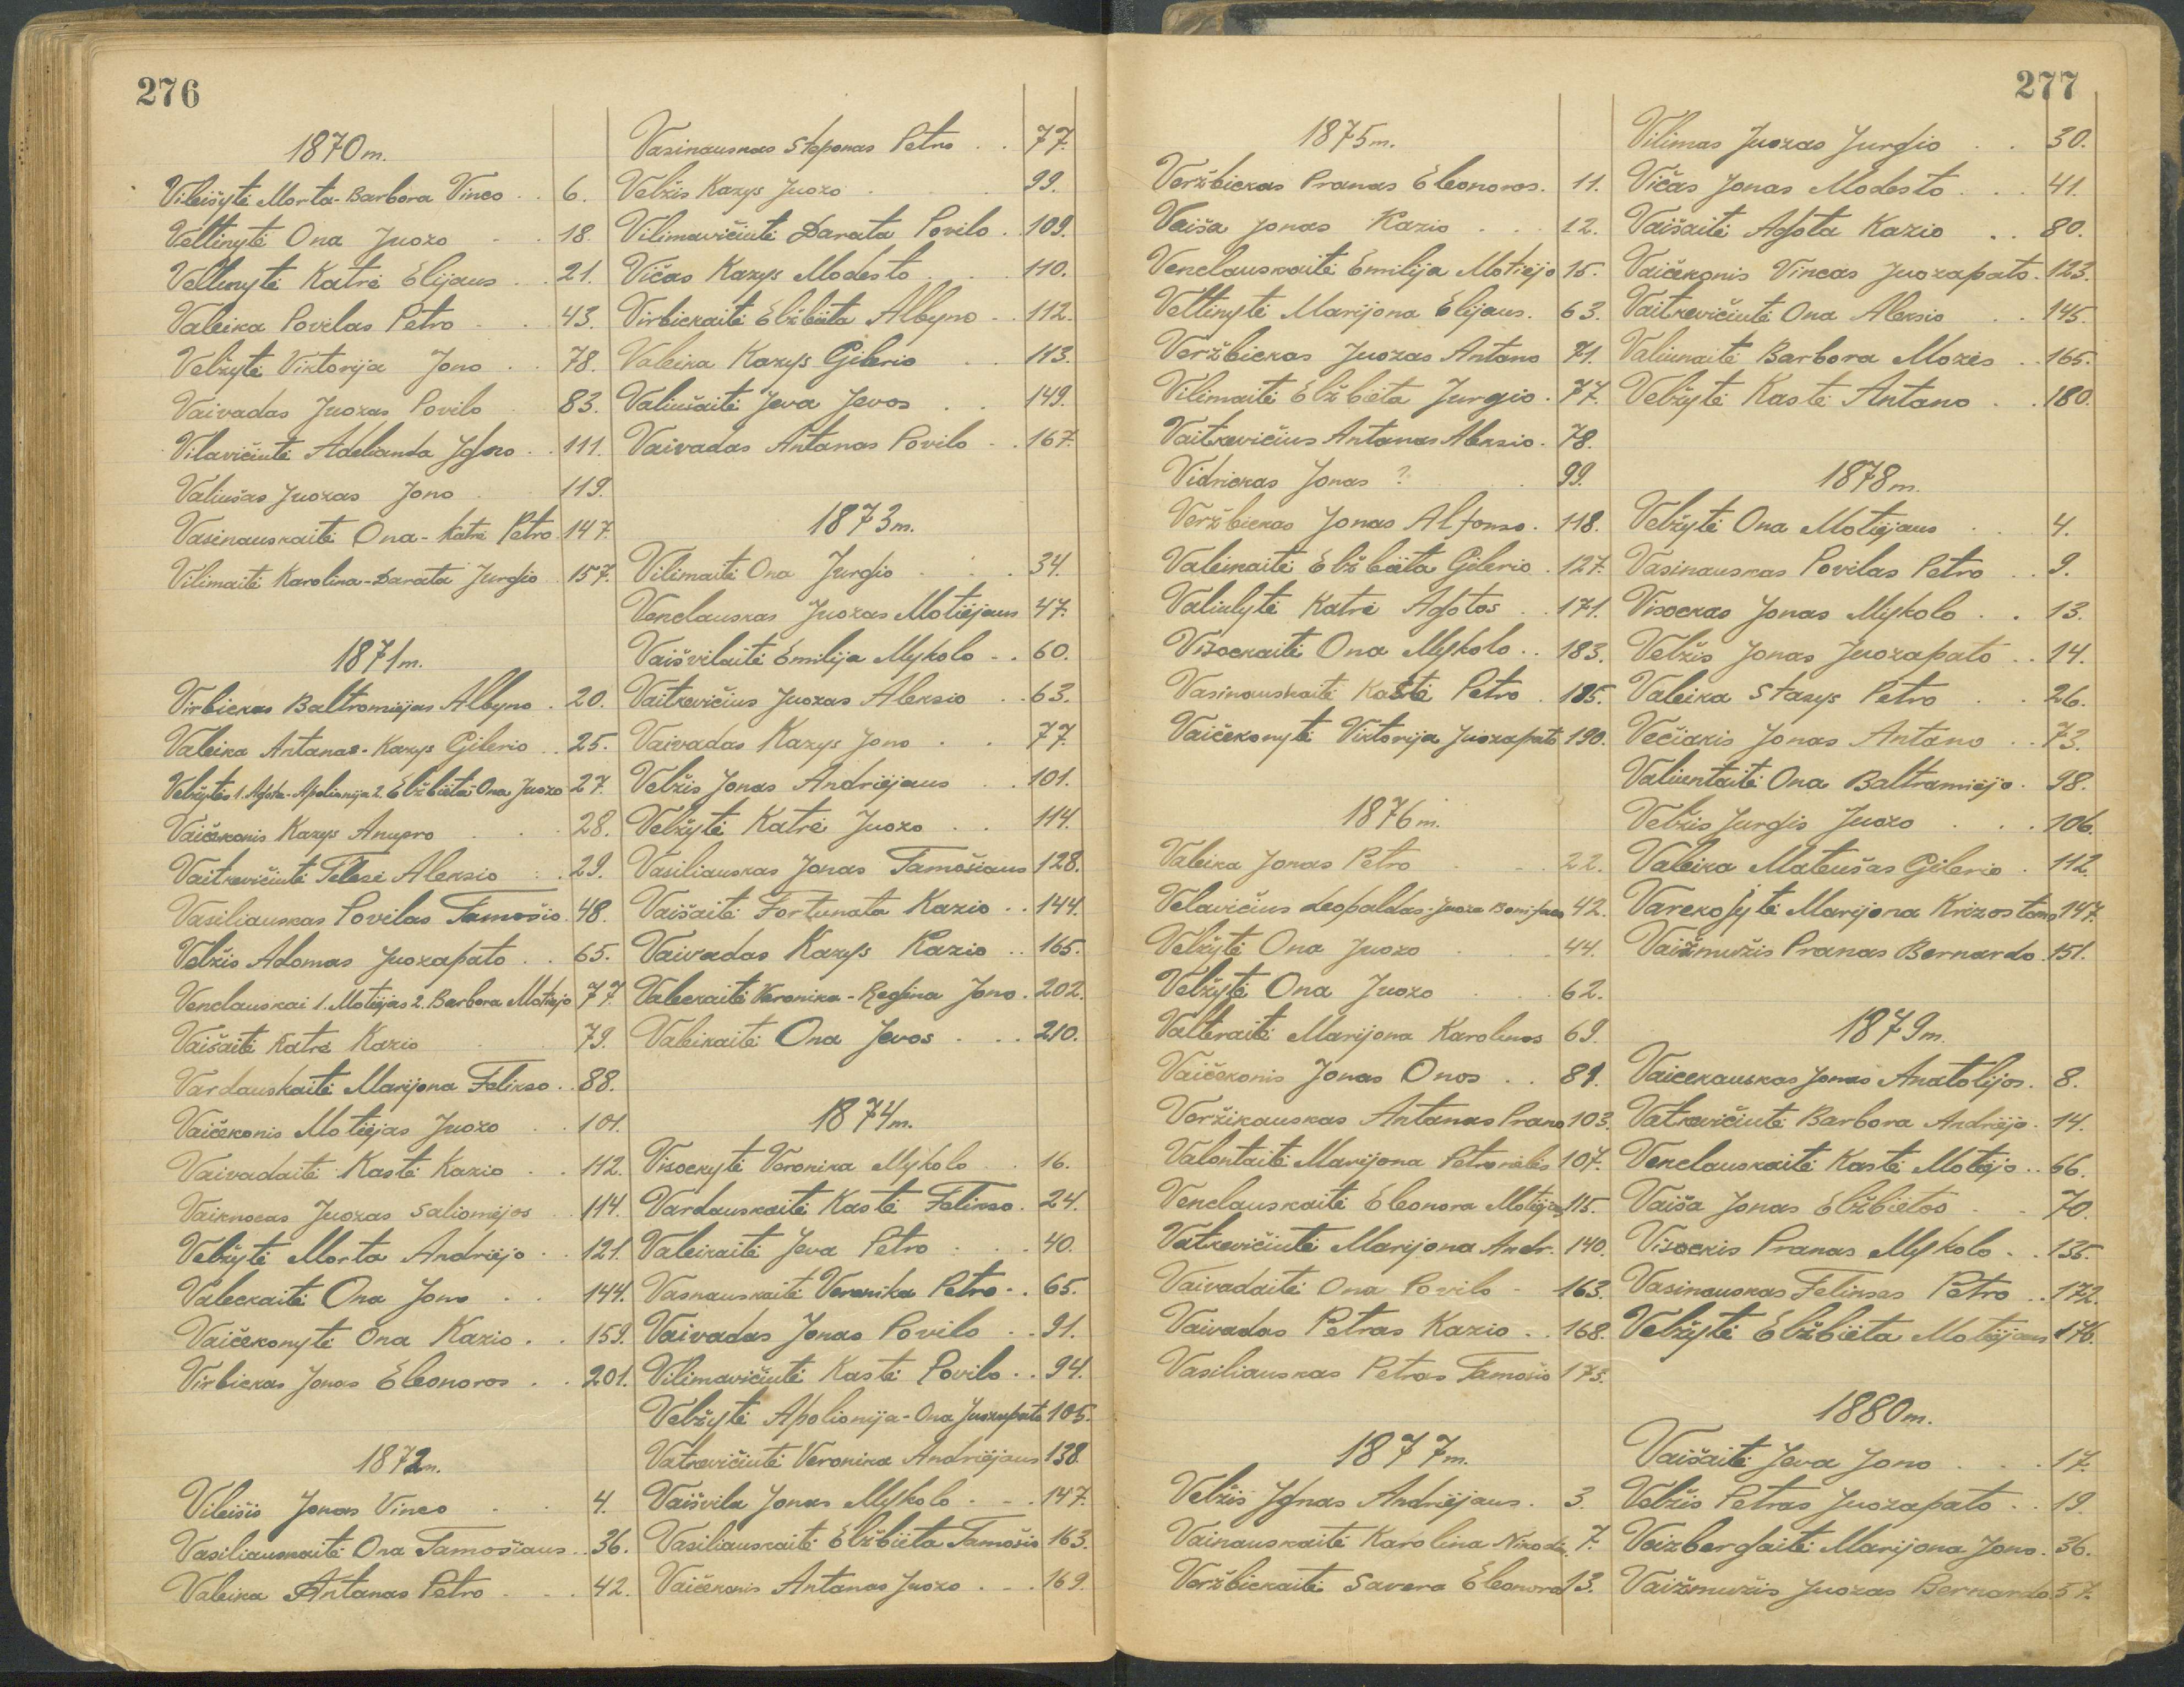 276
1870m.
Vileišytė Morta-Barbora Vinco . . 6.
Veltinytė Ona Juozo . . 18.
Veltinytė Katrė Elijaus . . 21.
Valeika Povilas Petro . . 43.
Velžytė Viktorija Jono . . 78.
Vaivadas Juozas Povilo 83.
Vilavičiutė Adelianda Igno . . 111.
Valiušas Juozas Jono . 119.
Vasinauskaitė Ona-Katrė Petro 147.
Vilimaitė Karolina-Darata Jurgio . 157.
1871m.
Virbickas Baltromiejas Albyno . 20.
Valeika Antanas-Kazys Gilerio . . 25.
Velžytės 1. Agota-Apolionija 2. Elžbieta-Ona Juozo 27.
Vaičekonis Kazys Anupro . . 28.
Vaitkevičiutė Telesė Aleksio . . 29.
Vasiliauskas Povilas Tamošio. 48.
Velžis Adomas Juozapato . . 65.
Venclauskai 1. Motiejas 2. Barbora Motiejo 77.
Vaišaitė Katrė Kazio . 79.
Vardauskaitė Marijona Felikso . . 88.
Vaičekonis Motiejas Juozo . . 101.
Vaivadaitė Kastė Kazio . . 112.
Juozas Saliomėjos . . 114.
Velžytė Morta Andriejo . . 121.
Valeckaitė Ona Jono . . 144.
Vaičekonytė Ona Kazio . . 159.
Virbickas Jonas Eleonoros . . 201.
1872m.
Vileišis Jonas Vinco . . 4.
Vasiliauskaitė Ona Tamošiaus . . 36.
Valeika Antanas Petro . . . 42.
Vasinauskas Steponas Petro . . 77.
Velžis Kazys Juozo . . 99.
Vilimavičiutė Darata Povilo . . 109.
Vičas Kazys Modesto . . 110.
Virbickaitė Elžbieta Albyno . . 112.
Valeika Kazys Gilerio . . 113.
Valiušaitė Jeva Jevos . . 149.
Vaivadas Antanas Povilo . . 167.
1873m.
Vilimaitė Ona Jurgio . . . 34.
Venclauskas Juozas Motiejaus 47.
Vaišvilaitė Emilija Mykolo . . 60.
Vaitkevičius Juozas Aleksio . . 63.
Vaivadas Kazys Jono . . 77.
Velžis Jonas Andriejaus . . 101.
Velžytė Katrė Juozo . . 114.
Vasiliauskas Jonas Tamošiaus 128.
Vaišaitė Fortunata Kazio . . 144.
Vaivadas Kazys Kazio . . 165.
Valeckaitė Veronika-Regina Jono . 202.
Valeikaitė Ona Jevos . . . 210.
1874m.
Visockytė Veronika Mykolo . . 16.
Vardauskaitė Kastė Felikso . 24.
Valeikaitė Jeva Petro . . . 40.
Vasnauskaitė Veronika Petro . . 65.
Vaivadas Jonas Povilo . . 91.
Vilimavičiutė Kastė Povilo . . 94.
Velžytė Apolionija-Ona Juozapato 105.
Vatkevičiutė Veronika Andriejaus 138
Vaišvila Jonas Mykolo . . . 147.
Vasiliauskaitė Elžbieta Tamošio 163.
Vaičekonis Antanas Juozo . . . 169.
277
1875m.
Veržbickas Pranas Eleonoros. 11.
Vaiša Jonas Kazio . . . 12.
Venclauskaitė Emilija Motiejo 15.
Veltinytė Marijona Elijaus. 63.
Veržbickas Juozas Antano 71.
Vilimaitė Elžbieta Jurgio . 77.
Vaitkevičius Antanas Aleksio . 78.
Vidrickas Jonas ? . 99.
Veržbickas Jonas Alfonso . 118.
Valeikaitė Elžbieta Gilerio . 127.
Valiulytė Katrė Agotos . . 171.
Visockaitė Ona Mykolo . . 183.
Vasinauskaitė Kastė Petro . 185.
Vaičekonytė Viktorija Juozapato 190.
1876m.
Valeika Jonas Petro . . 22.
Velavičius Leopoldas-Juozas Bonifaco 42.
Velžytė Ona Juozo . . 44.
Velžytė Ona Juozo . . 62.
Valteraitė Marijona Karolinos 69.
Vaičekonis Jonas Onos . . 81.
Veržikauskas Antanas Prano 103.
Valentaitė Marijona Petronėlės 107.
Venclauskaitė Eleonora Motiejaus 115.
Vatkevičiutė Marijona Andr. 140.
Vaivadaitė Ona Povilo - 163.
Vaivadas Petras Kazio . . 168.
Vasiliauskas Petras Tamošio 175.
1877m.
Velžis Ignas Andriejaus . 3.
Vainauskaitė Karolina Nikod. 7.
Veržbickaitė Savera Eleonoros 13.
Vilimas Juozas Jurgio . . 30.
Vičas Jonas Modesto . . . 41.
Vaišaitė Agota Kazio . . 80.
Vaičekonis Vincas Juozapato . 123.
Vaitkevičiutė Ona Aleksio . . 145.
Valiunaitė Barbora Mozės . . 165.
Velžytė Kastė Antano . . 180.
1878m.
Velžytė Ona Motiejaus . 4.
Vasinauskas Povilas Petro . . 9.
Visockas Jonas Mykolo . . 13.
Velžis Jonas Juozapato . . 14.
Valeika Stasys Petro . . 26.
Večiakis Jonas Antano . . 73.
Valiuntaitė Ona Baltramiejo . 98.
Velžis Jurgis Juozo . . . 106.
Valeika Mateušas Gilerio . 112.
Marijona Krizostomo 147.
Vaižmužis Pranas Bernardo . 151.
1879m.
Vaicekauskas Jonas Anatolijos. 8.
Vatkevičiutė Barbora Andriejo . 14.
Venclauskaitė Kastė Motiejo . . 66.
Vaiša Jonas Elžbietos . . 70.
Visockis Pranas Mykolo . . 135.
Vasinauskas Feliksas Petro . . 172.
Velžytė Elžbieta Motiejaus 176.
1880m.
Vaišaitė Jeva Jono . . . 17.
Velžis Petras Juozapato . . 19.
Vaizbergaitė Marijona Jono . 36.
Vaižmužis Juozas Bernardo 57.